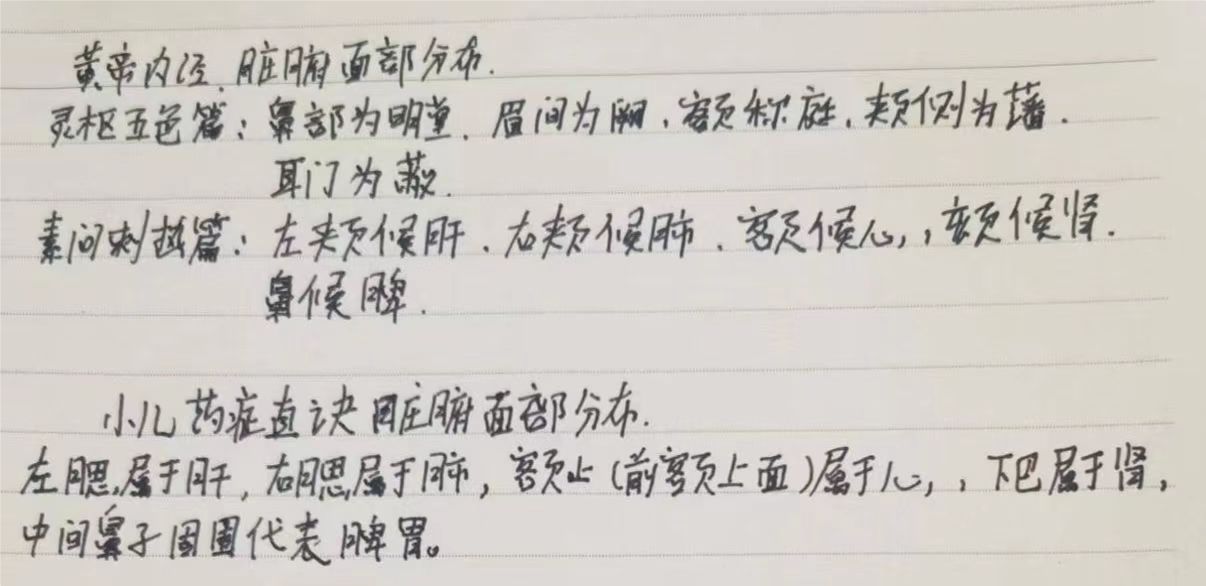 黄帝内径.脏腑面部分布.
灵枢五色篇:鼻部为明堂.眉间为阙.额称庭.颊侧为藩.
耳门为蔽.
素问刺热篇:左颊候肝.右颊候肺.额候心,颏候肾.
鼻候脾.
小儿药症直诀脏腑面部分布.
左腮属于肝,右腮属于肺,额上(前额上面)属于心,,下巴属于肾,
中间鼻子周围代表脾胃。